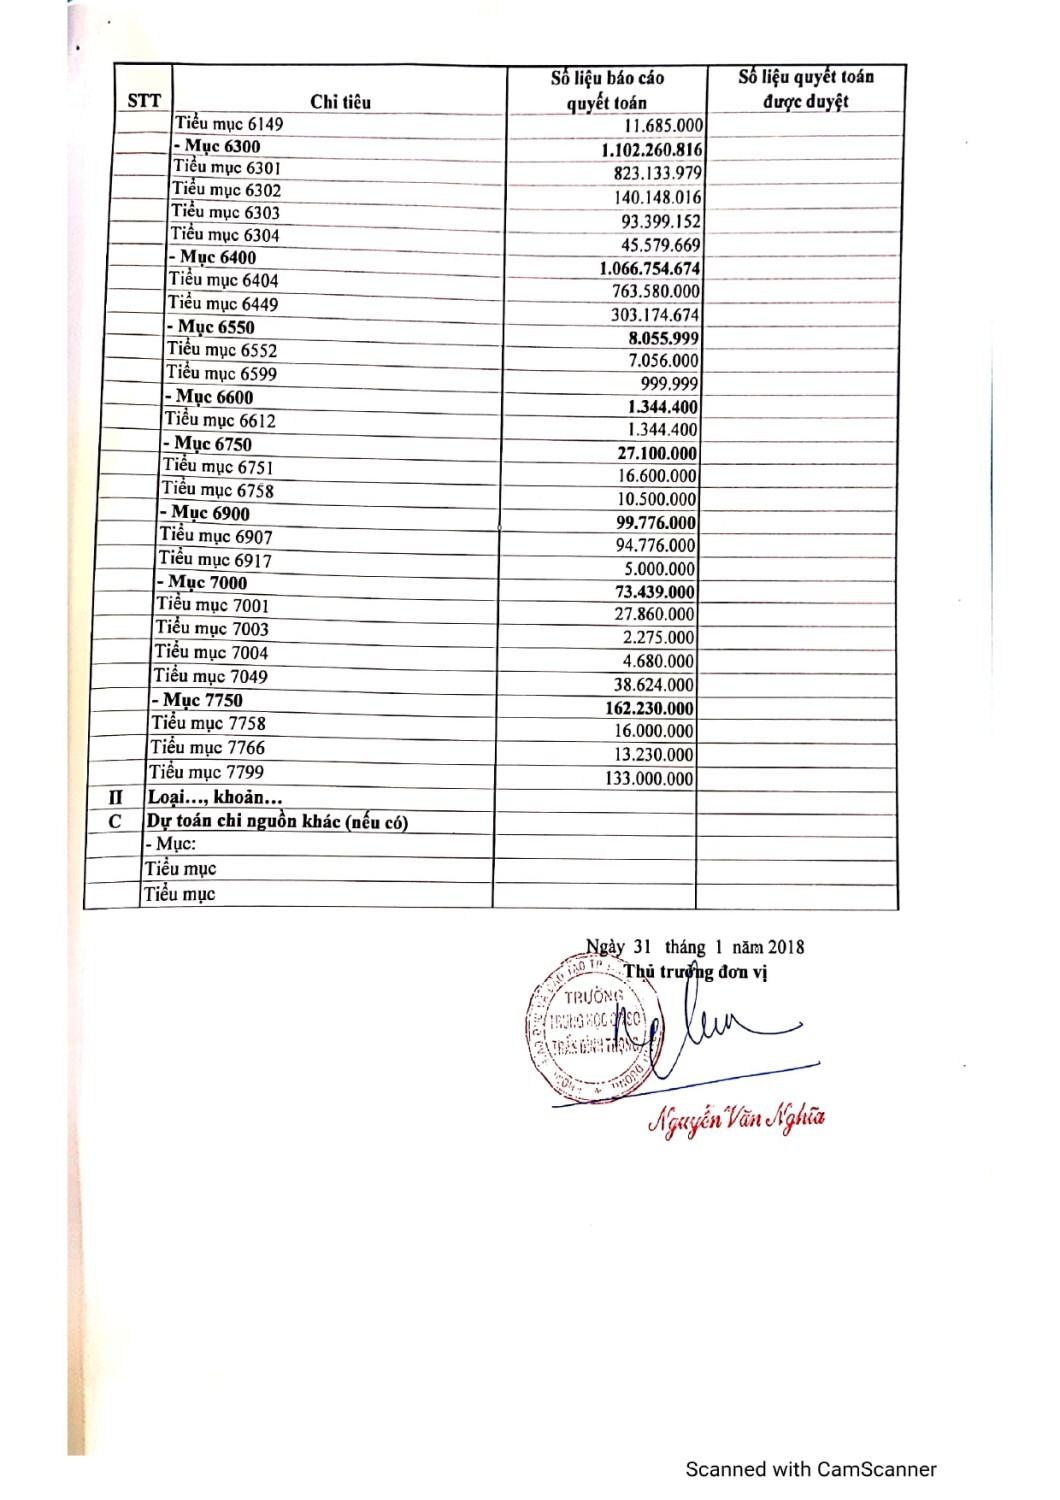 STT Chỉ tiêu Số liệu báo cáo quyết toán Số liệu quyết toán được duyệt
Tiểu mục 6149 11.685.000
- Mục 6300 1.102.260.816
Tiểu mục 6301 823.133.979
Tiểu mục 6302 140.148.016
Tiểu mục 6303 93.399.152
Tiểu mục 6304 45.579.669
- Mục 6400 1.066.754.674
Tiểu mục 6404 763.580.000
Tiểu mục 6449 303.174.674
- Mục 6550 8.055.999
Tiểu mục 6552 7.056.000
Tiểu mục 6599 999.999
- Mục 6600 1.344.400
Tiểu mục 6612 1.344.400
- Mục 6750 27.100.000
Tiểu mục 6751 16.600.000
Tiểu mục 6758 10.500.000
- Mục 6900 99.776.000
Tiểu mục 6907 94.776.000
Tiểu mục 6917 5.000.000
- Mục 7000 73.439.000
Tiểu mục 7001 27.860.000
Tiểu mục 7003 2.275.000
Tiểu mục 7004 4.680.000
Tiểu mục 7049 38.624.000
- Mục 7750 162.230.000
Tiểu mục 7758 16.000.000
Tiểu mục 7766 13.230.000
Tiểu mục 7799 133.000.000
II Loại..., khoản...
C Dự toán chi nguồn khác (nếu có)
- Mục:
Tiểu mục
Tiểu mục
Ngày 31 tháng 1 năm 2018
Thủ trưởng đơn vị
TRƯỜNG
TRUNG HỌC CƠ SỞ
TRẦN BÌNH TRỌNG
Nguyễn Văn Nghĩa
Scanned with CamScanner